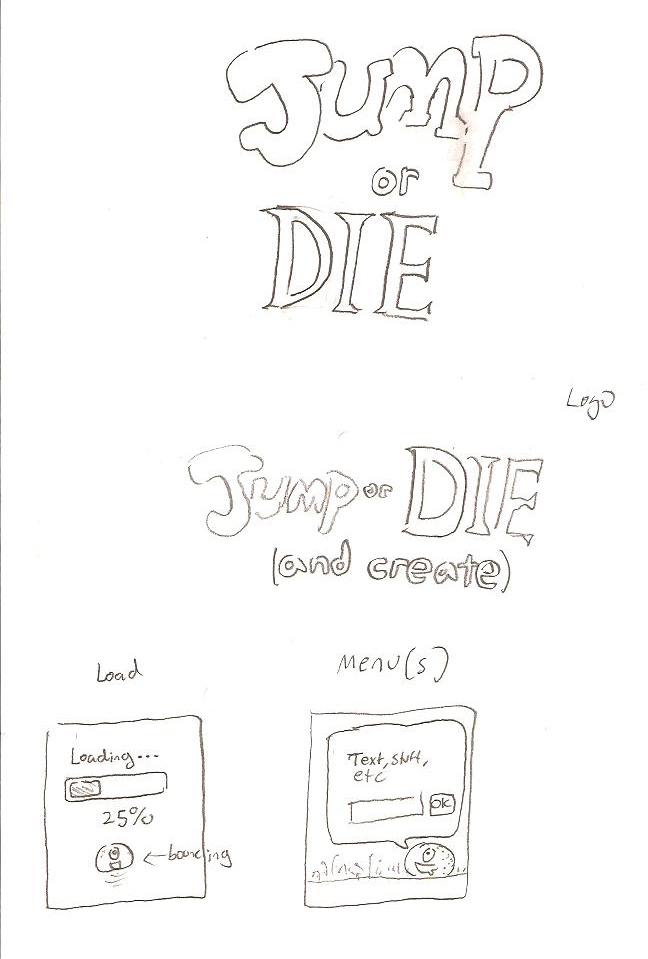 Jump
or
DIE
Logo
Jump or DIE
(and create)
Load
Menu(s)
Loading...
25%
←bouncing
Text, stuff,
etc
OK